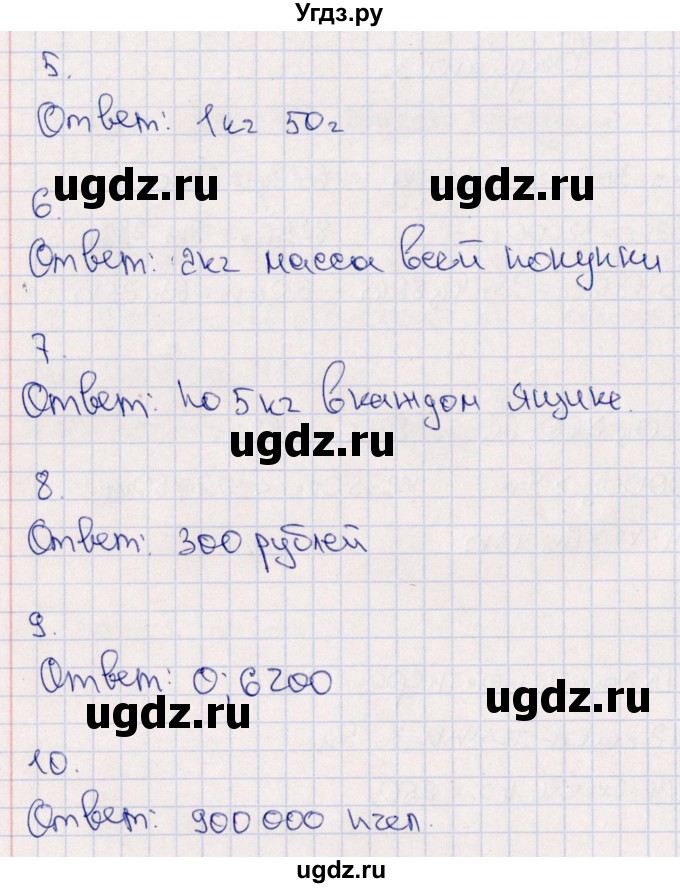 Угдз.ру
5.
Ответ: 1кг 50г
ugdz.ru ugdz.ru
6.
Ответ: 2кг масса всей покупки
7.
Ответ: по 5кг в каждом ящике.
ugdz.ru
8.
Ответ: 300 рублей
9.
Ответ: 0; 6200
ugdz.ru ugdz.ru
10.
Ответ: 900 000 пчел.
ugdz.ru